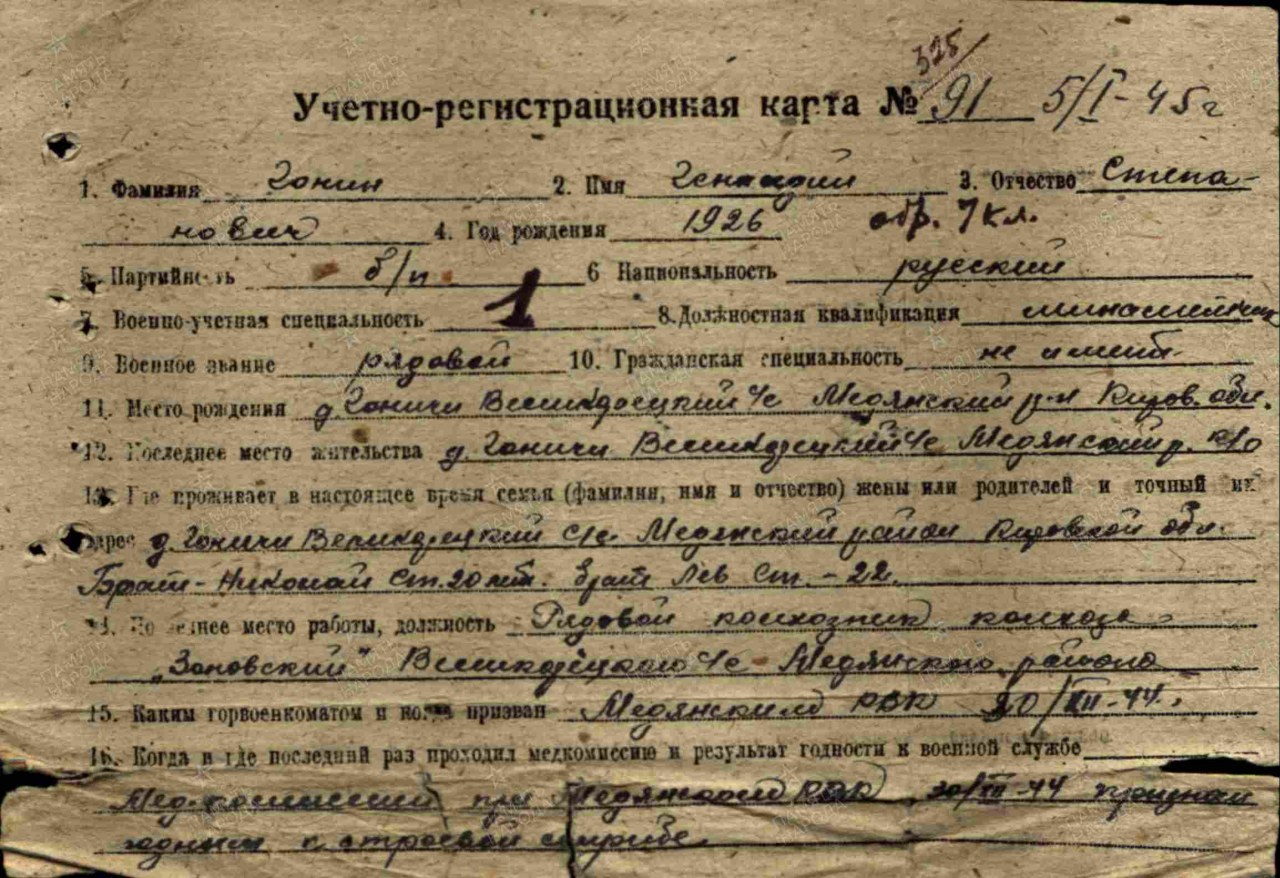 325/
Учетно-регистрационная карта № 91 5/I-45г
1. Фамилия Гонин 2. Имя Геннадий 3. Отчество Степа-
нович 4. Год рождения 1926 обр. 7 кл.
5. Партийность б/п 6 Национальность русский
7. Военно-учетная специальность 1 8. Должностная квалификация
9. Военное звание рядовой 10. Гражданская специальность не имеет
11. Место рождения д. Гоничи Великорецкий с/с Медянский р-н Киров. обл.
12. Последнее место жительства д. Гоничи Великорецкий с/с Медянский р. К/о
13. Где проживает в настоящее время семья (фамилия, имя и отчество) жены или родителей и точный их
адрес д. Гоничи Великорецкий с/с Медянский район Кировской обл.
Брат - Николай Ст. 20 лет. брат Лев Ст. - 22.
14. место работы, должность Рядовой колхозник колхоза
" Великорецкого с/с Медянского района
15. Каким горвоенкоматом и когда призван Медянским РВК 30/XII-44.
16. Когда и где последний раз проходил медкомиссию и результат годности к военной службе
Мед. при Медянском РВК 30/XII-44 признан
годным к строевой службе.